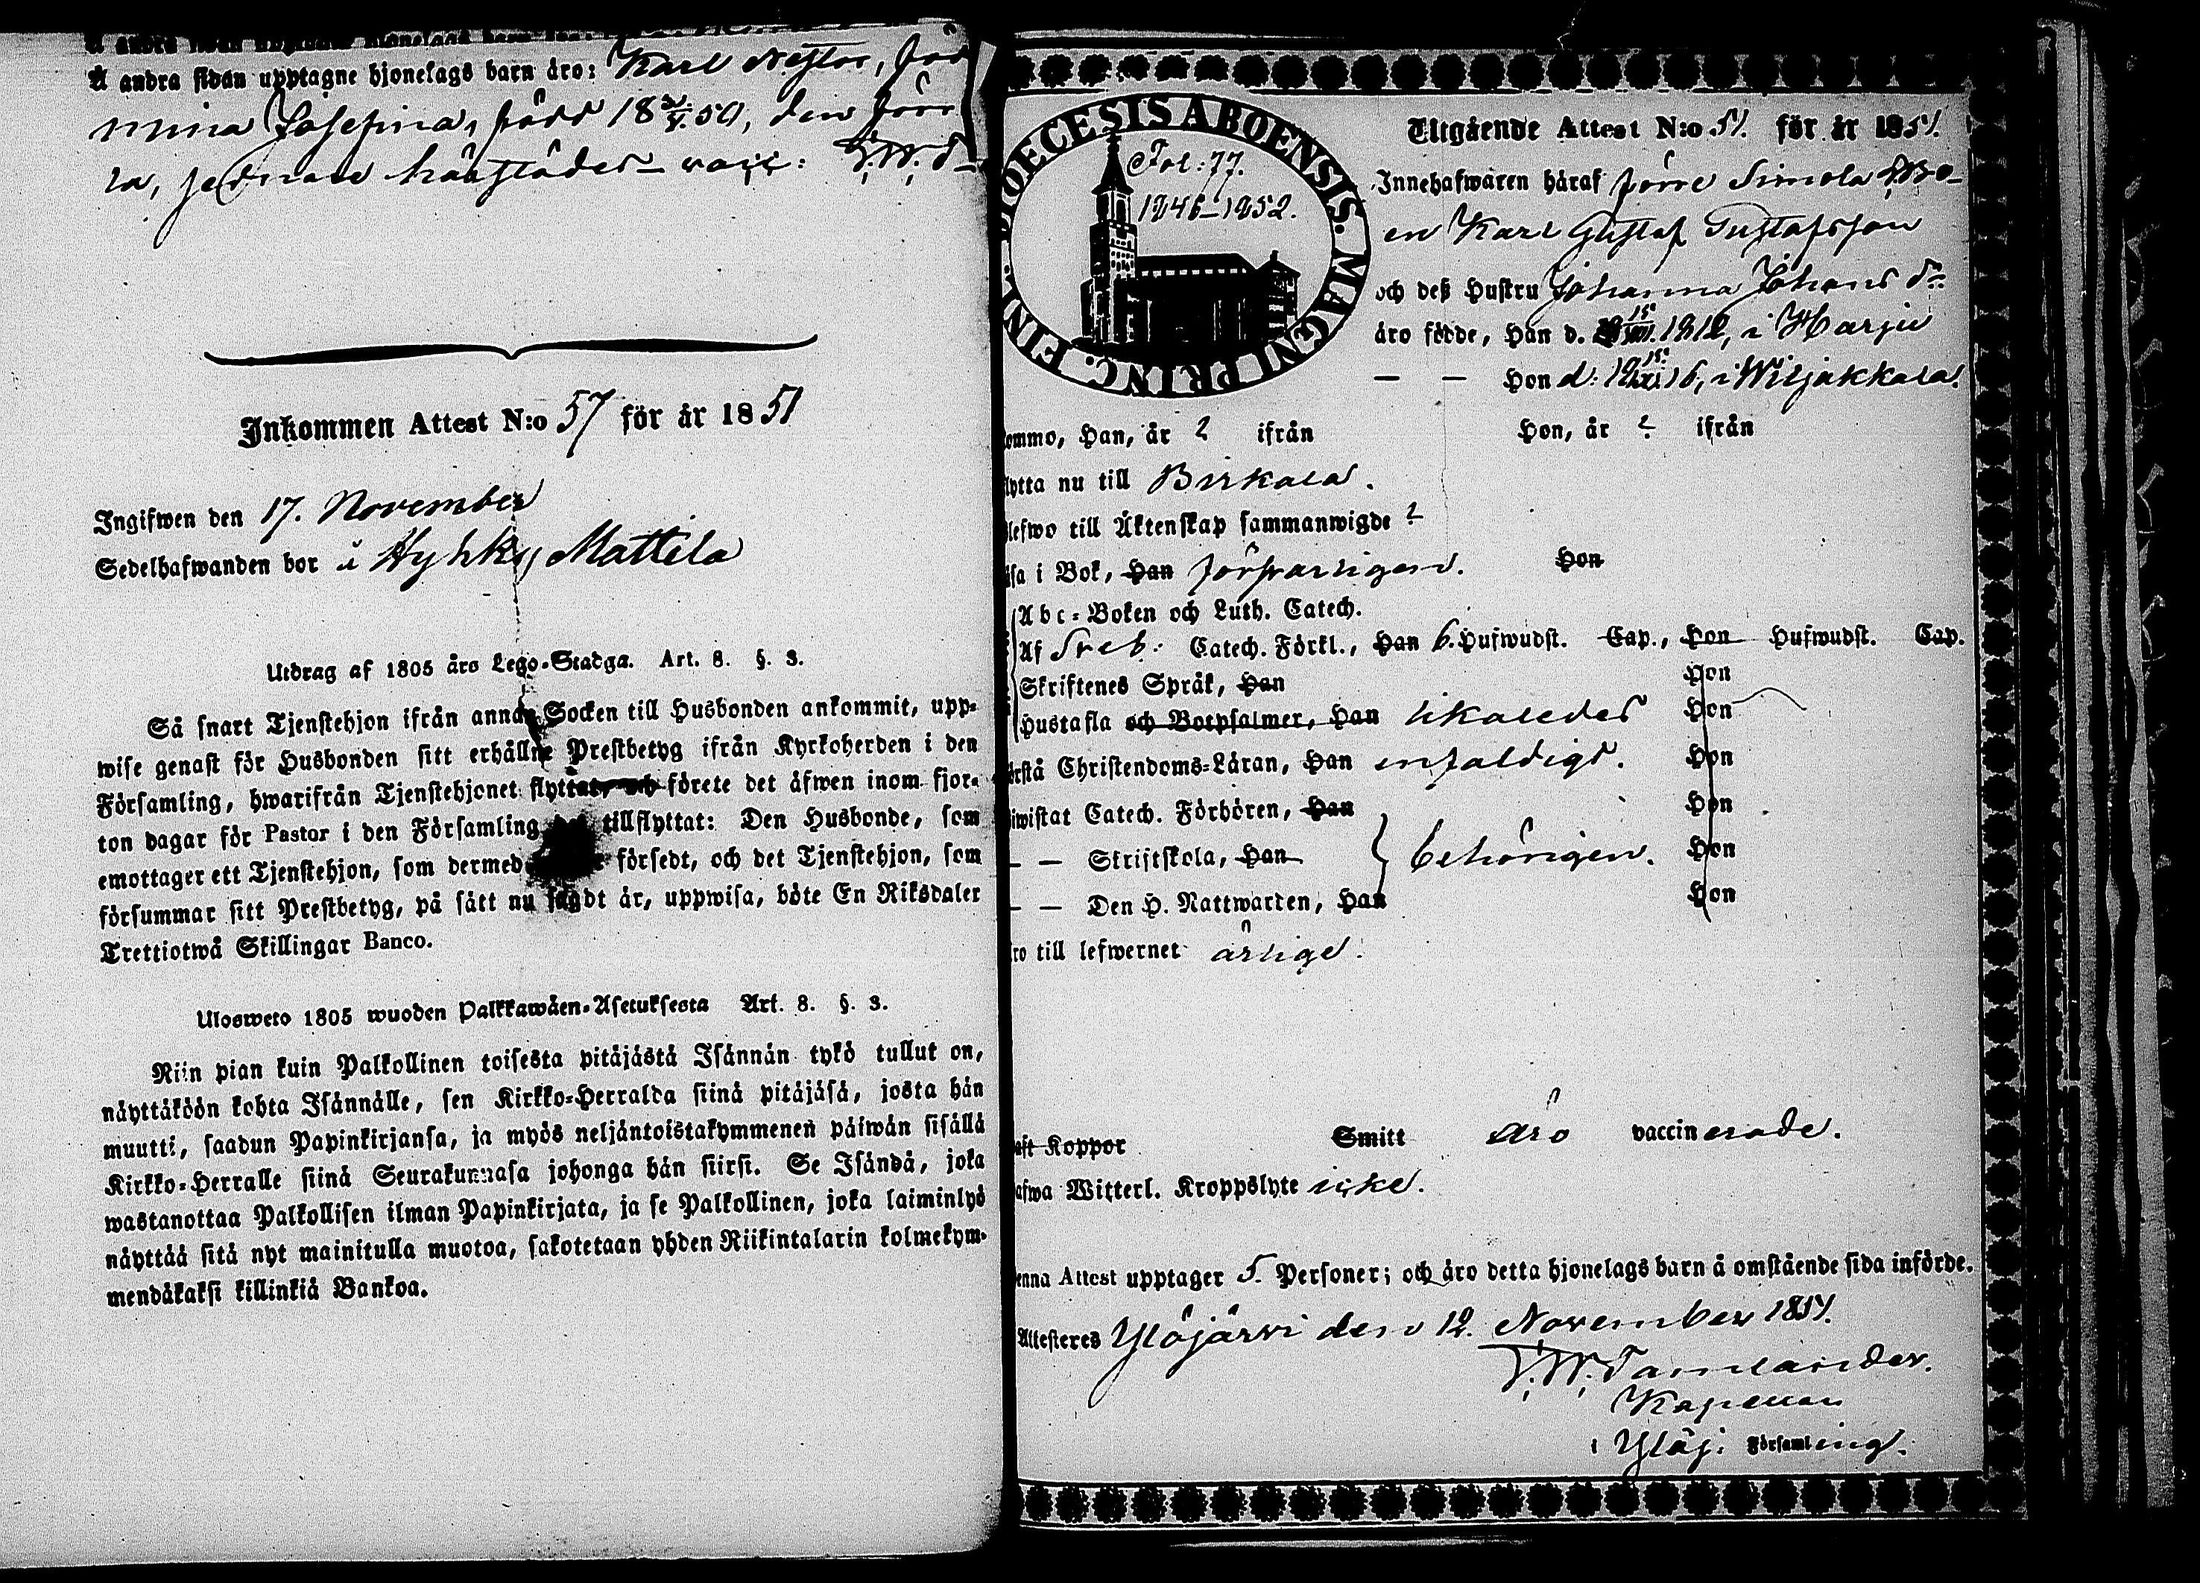 Å andra sidan upptagne hjonelags barn äro: Karl Nestor, föd
mina Josefina, född 18 50, den förr
ra, sednare härstädes vacc: F.W. T
Inkommen Attest N:o 57 för år 1851
Ingifwen den 17. November
Sedelhafwanden bor å Hyhky Mattila
Utdrag af 1805 års Lego-Stadga. Art. 8. §. 3.
Så snart Tjenstehjon ifrån annan Socken till Husbonden ankommit, upp-
wise genast för Husbonden sitt erhållne Prestbetyg ifrån Kyrkoherden i den
Församling, hwarifrån Tjenstehjonet flyttat, och förete det äfwen inom fjor-
ton dagar för Pastor i den Församling tillflyttat: Den Husbonde, som
emottager ett Tjenstehjon, som dermed försedt, och det Tjenstehjon, som
försummar sitt Prestbetyg, på sätt nu sagdt är, uppwisa, böte En Riksdaler
Trettiotwå Skillingar Banco.
Ulosweto 1805 wuoden Palkkawäen-Asetuksesta Art. 8. §. 3.
Niin pian kuin Palkollinen toisesta pitäjästä Isännän tykö tullut on,
näyttäköön kohta Isännälle, sen Kirkko-Herralda siinä pitäjäsä, josta hän
muutti, saadun Papinkirjansa, ja myös neljäntoistakymmenen päiwän sisällä
Kirkko-Herralle siinä Seurakunnasa johonga hän siirsi. Se Isändä, joka
wastanottaa Palkollisen ilman Papinkirjata, ja se Palkollinen, joka laiminlyö
näyttää sitä nyt mainitulla muotoa, sakotetaan yhden Riikintalarin kolmekym-
mendäkaksi killinkiä Bankoa.
DIOECESIS ABOENSIS. MAGNI PRINC. FINL.
Fol: 77.
1846-1852.
Utgående Attest N:o 51. för år 1851.
Innehafwaren häraf förre Simola
en Karl Gustaf Gustafsson
och deß Hustru Johanna Johans d:r
äro födde, Han d. 15 VIII. 1812, i Harju
— — Hon d: 18 15 XI 16, i Wiljakkala.
ommo, Han, år ? ifrån Hon, år ? ifrån
lytta nu till Birkala.
lefwo till Äktenskap sammanwigde ?
äsa i Bok, Han försvarligen. Hon
Abc-Boken och Luth. Catech.
Af Sveb: Catech. Förkl., Han 6. Hufwudst. Cap., Hon Hufwudst. Cap.
Skriftenes Språk, Han Hon
Hustafla och Botpsalmer, Han likaledes Hon
örstå Christendoms-Läran, Han enfaldigt. Hon
iwistat Catech. Förhören, Han Hon
— — Skriftskola, Han behörigen. Hon
— — Den H. Nattwarden, Han Hon
ro till lefwernet ärlige.
aft Koppor Smitt äro vaccinerade.
afwa Witterl. Kroppslyte icke.
enna Attest upptager 5. Personer; och äro detta hjonelags barn å omstående sida införde.
Attesteres Ylöjärvi den 12. November 1851.
F.W. Tamlander.
Kapellan
i Ylöj. Församling.